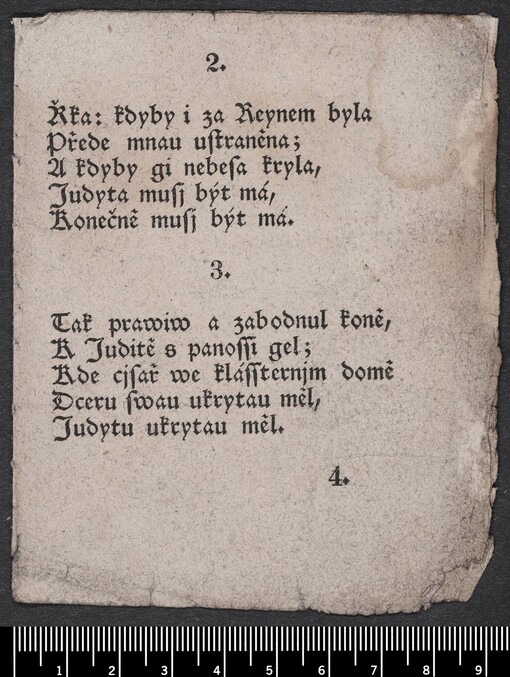 2.
Řka: kdyby i za Reynem byla
Přede mnau ustraněna;
A kdyby gi nebesa kryla,
Judyta musj být má,
Konečně musj být má.
3.
Tak prawiw a zabodnul koně,
K Juditě s panossi gel;
Kde cjsař we klássternjm domě
Dceru swau ukrytau měl,
Judytu ukrytau měl.
4.
1 2 3 4 5 6 7 8 9